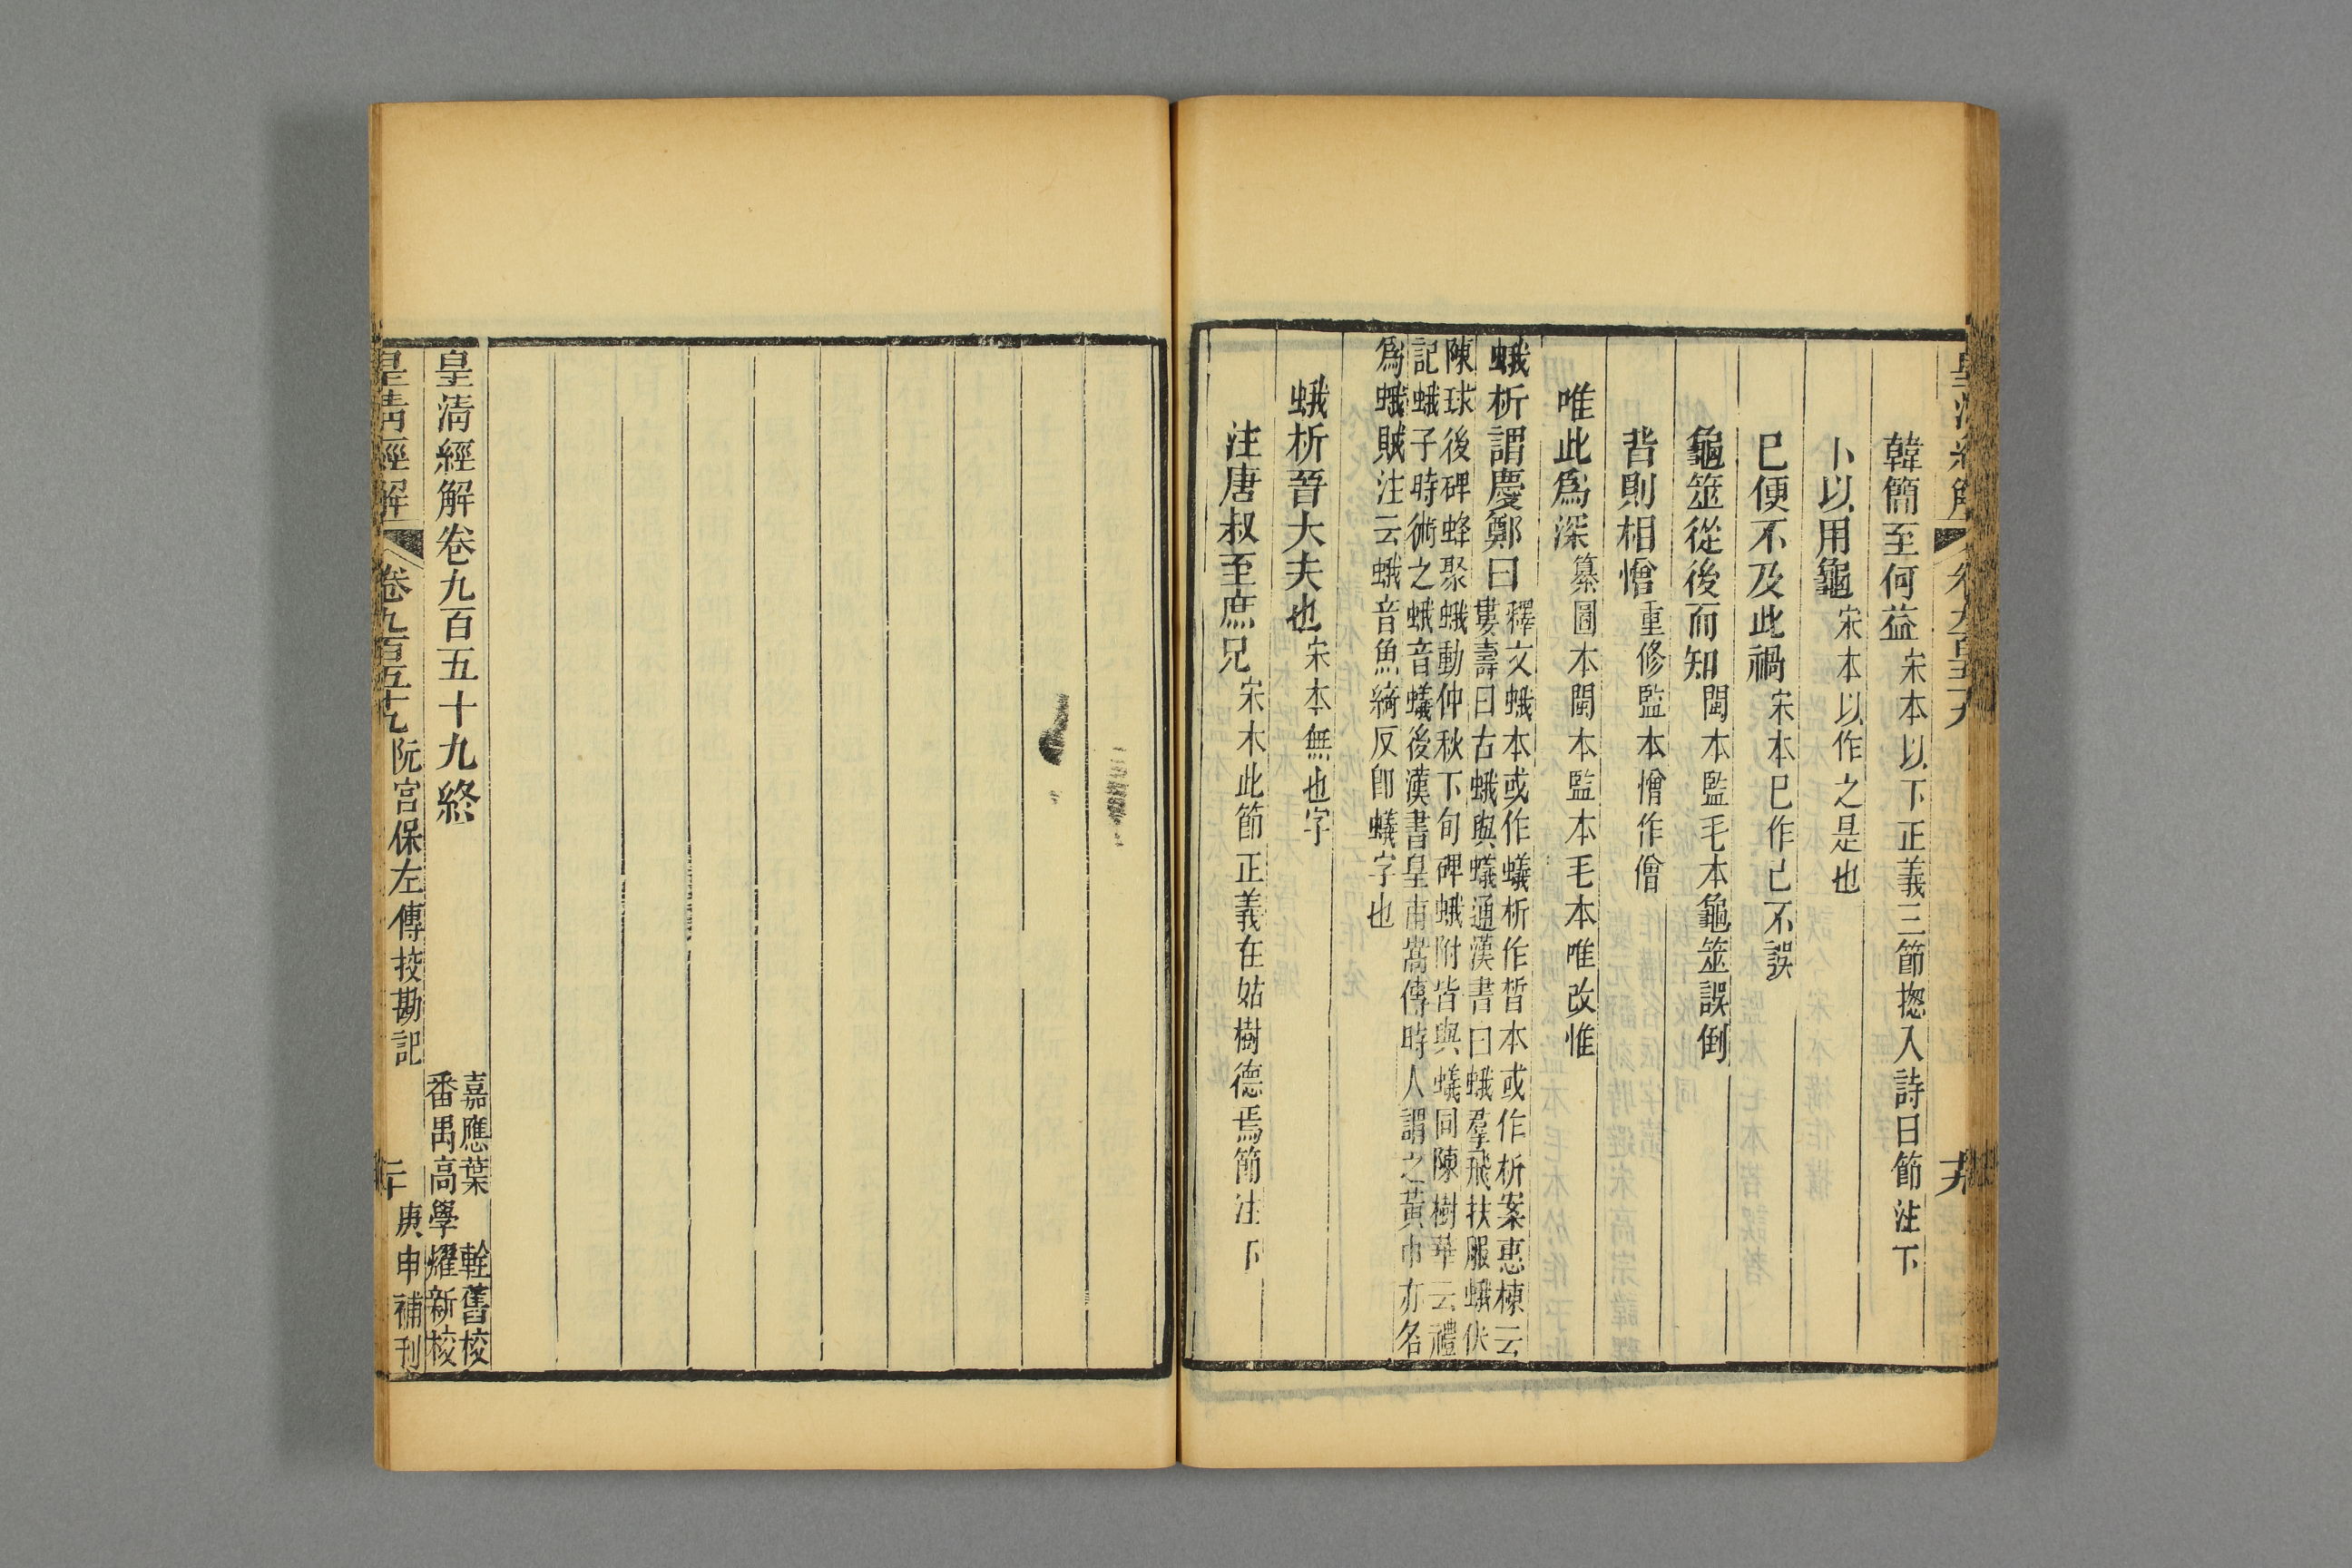 皇清經解 卷九百五十九 十九
韓簡至何益宋本以下正義三節揔入詩曰節注下
卜以用龜宋本以作之是也
巳便不及此禍宋本巳作已不誤
龜筮從後而知閩本監毛本龜筮誤倒
背則相憎重修監本憎作僧
唯此爲深纂圖本閩本監本毛本唯改惟
蛾析謂慶鄭曰釋文蛾本或作蟻析作晳本或作析案惠棟云
婁壽曰古蛾與蟻通漢書曰蛾羣飛扶服蛾伏
陳球後碑蜂聚蛾動仲秋下旬碑蛾附皆與蟻同陳樹華云禮
記蛾子時術之蛾音蟻後漢書皇甫嵩傳時人謂之黃巾亦名
爲蛾賊注云蛾音魚綺反卽蟻字也
蛾析晉大夫也宋本無也字
注唐叔至庶兄宋本此節正義在姑樹德焉節注下
皇清經解卷九百五十九終
嘉應葉 輇舊校
番禺高學燿新校
皇清經解 卷九百五十九 阮宮保左傳挍勘記 二十 庚申補刊